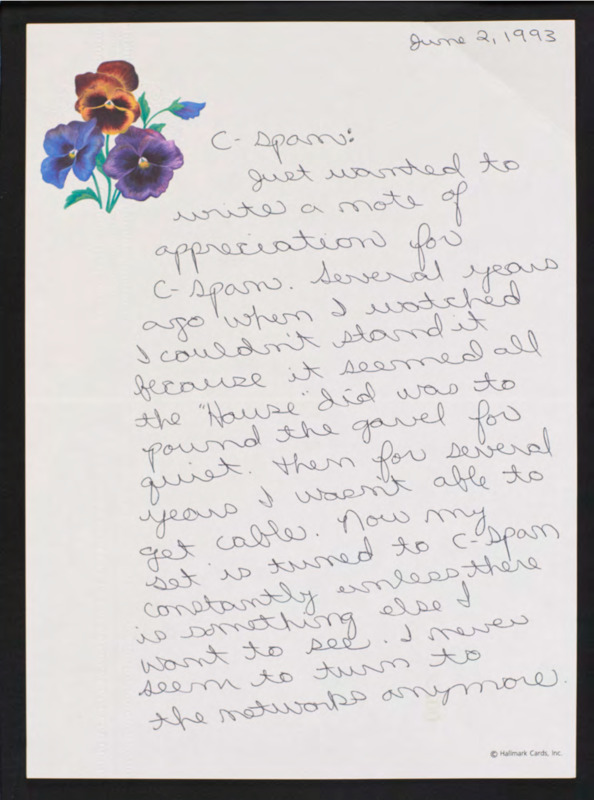 June 2, 1993
C-Span:
Just wanted to
write a note of
appreciation for
C-Span. Several years
ago when I watched
I couldn't stand it
because it seemed all
the "House" did was to
pound the gavel for
quiet. Then for several
years I wasn't able to
get cable. Now my
set is tuned to C-Span
constantly unless there
is something else I
want to see. I never
seem to turn to
the networks anymore.
© Hallmark Cards, Inc.